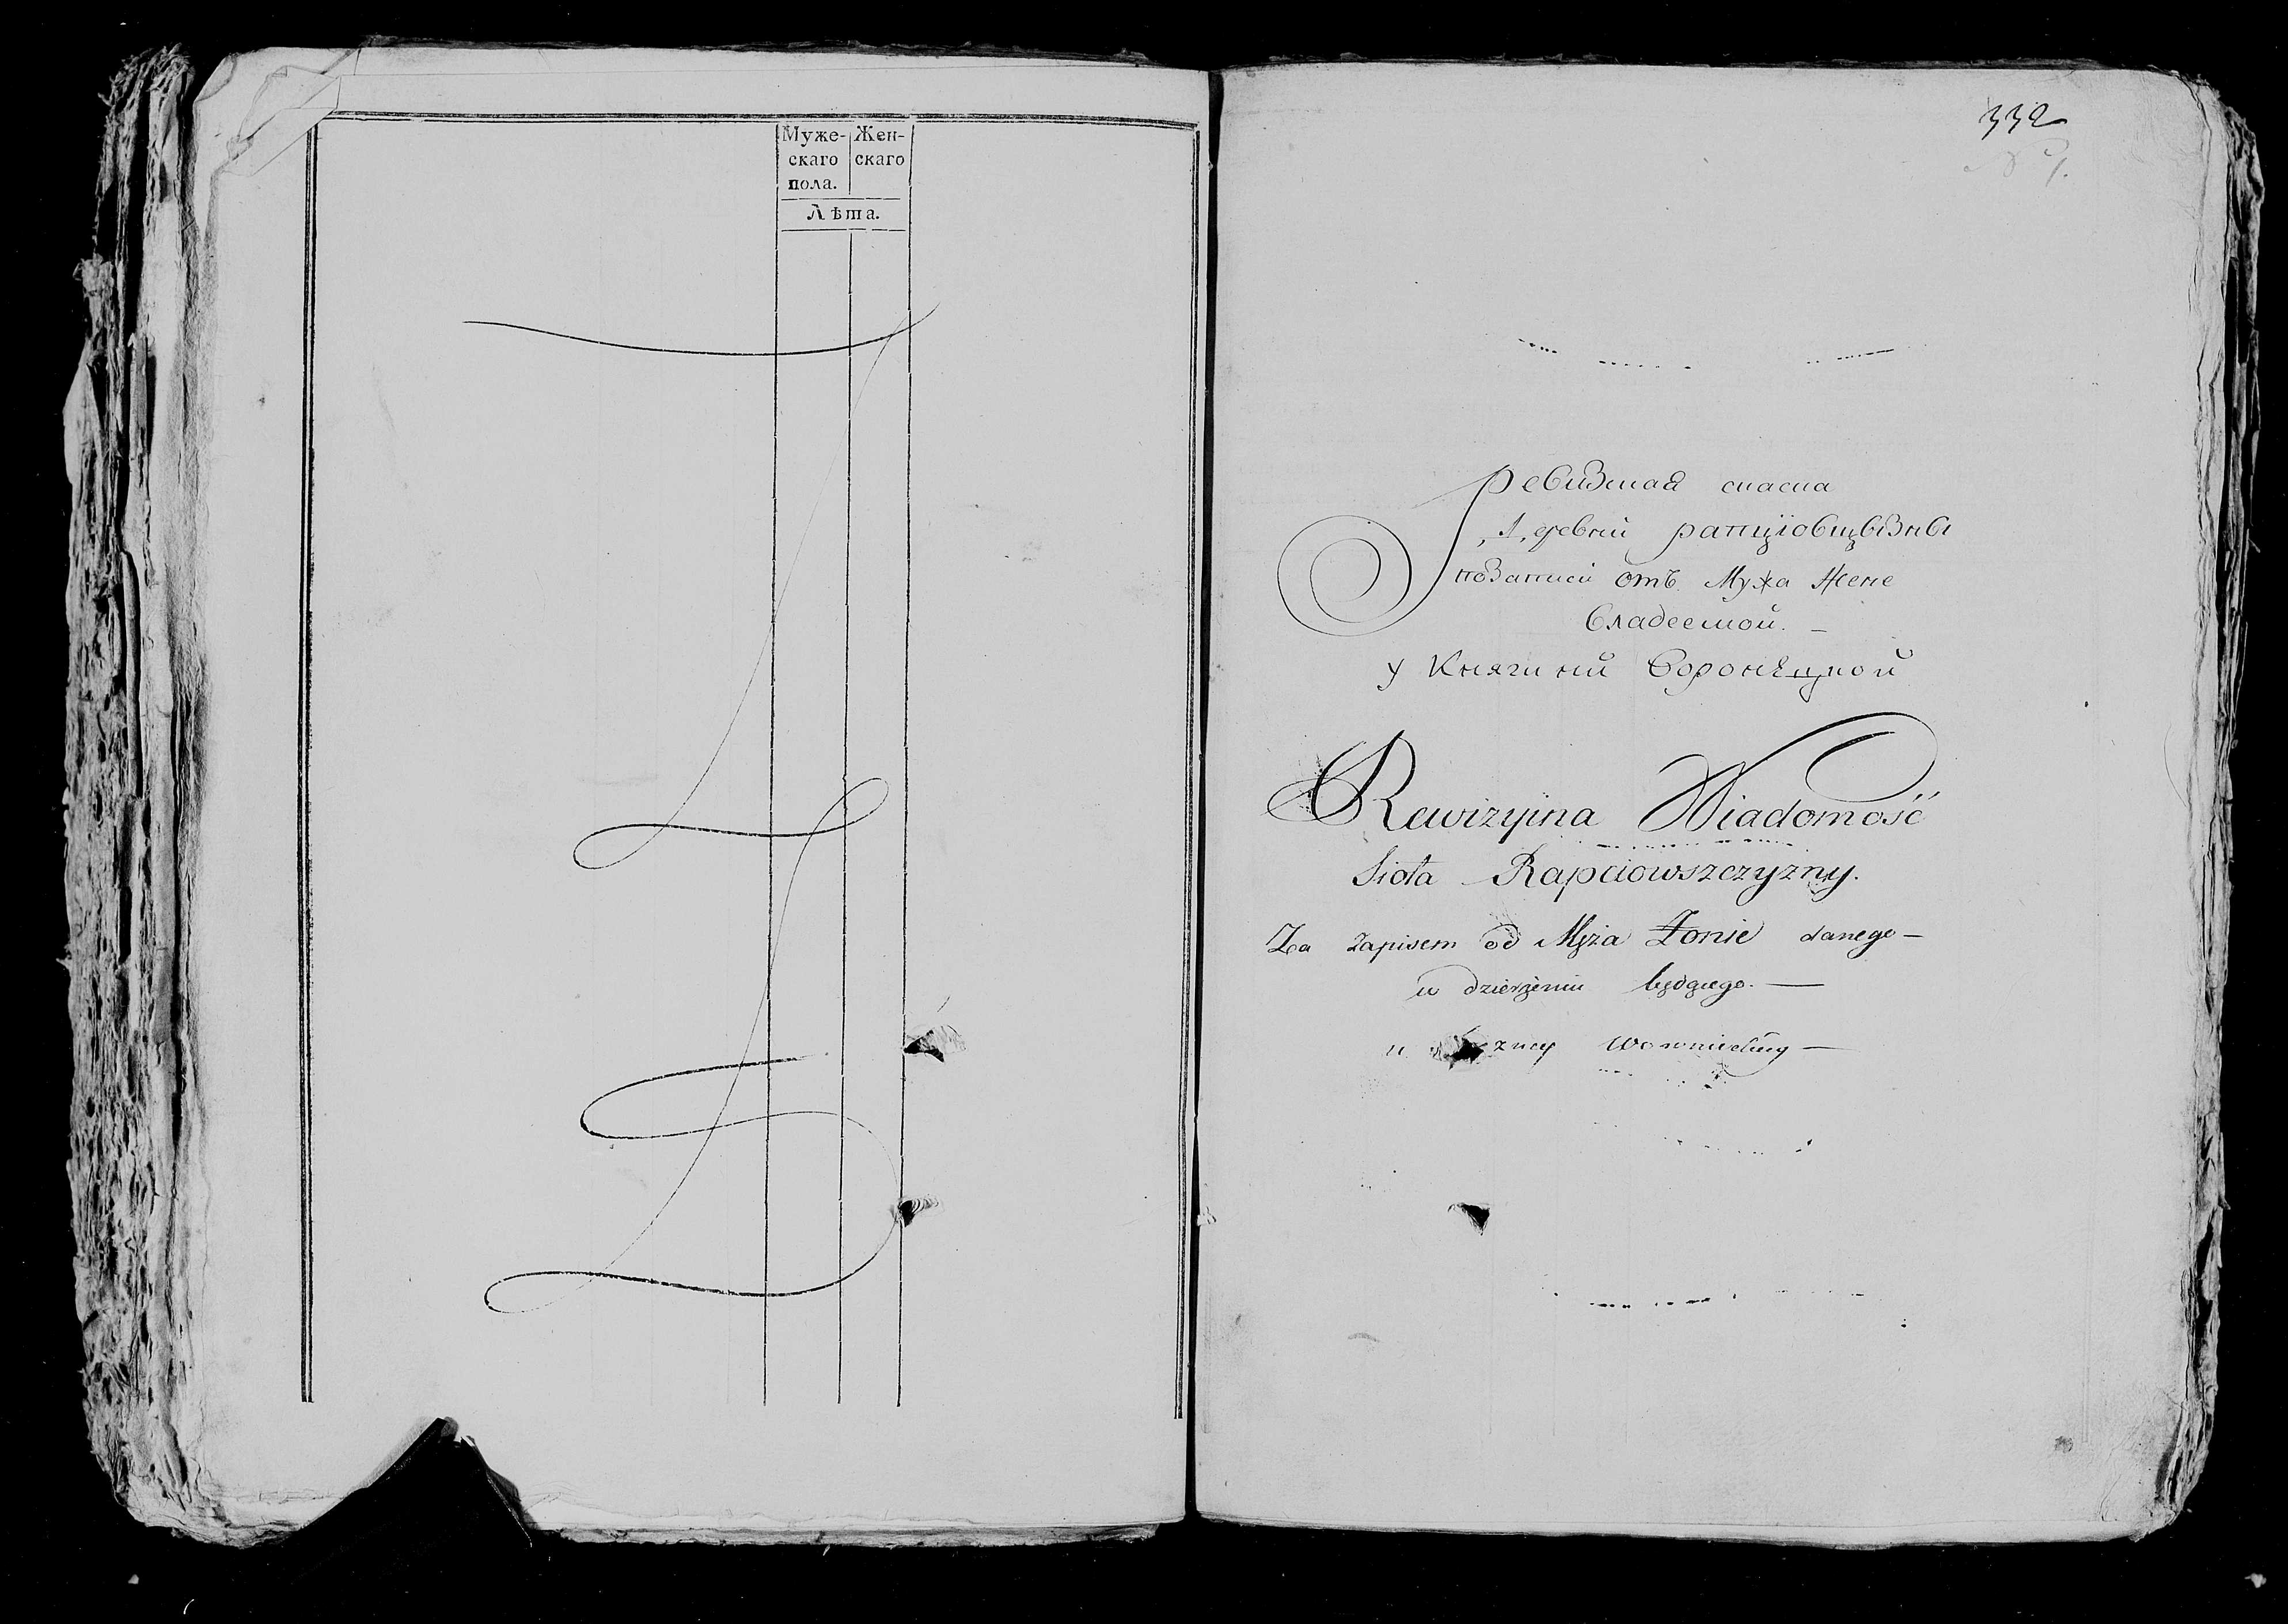 Муже- Жен-
скаго скаго
пола.
Лѣта.
332
ревизкая скаска
деревни рапцiовщызны
позаписи отъ Мужа Жене
Владеемой. –
у Княгини Воронѣцкой
Rewizyina Wiadomość
Sioła Rapciowszczyzny.
Za Zapisem od Męża Żonie danego –
w dzierżeniu będącego. –
u